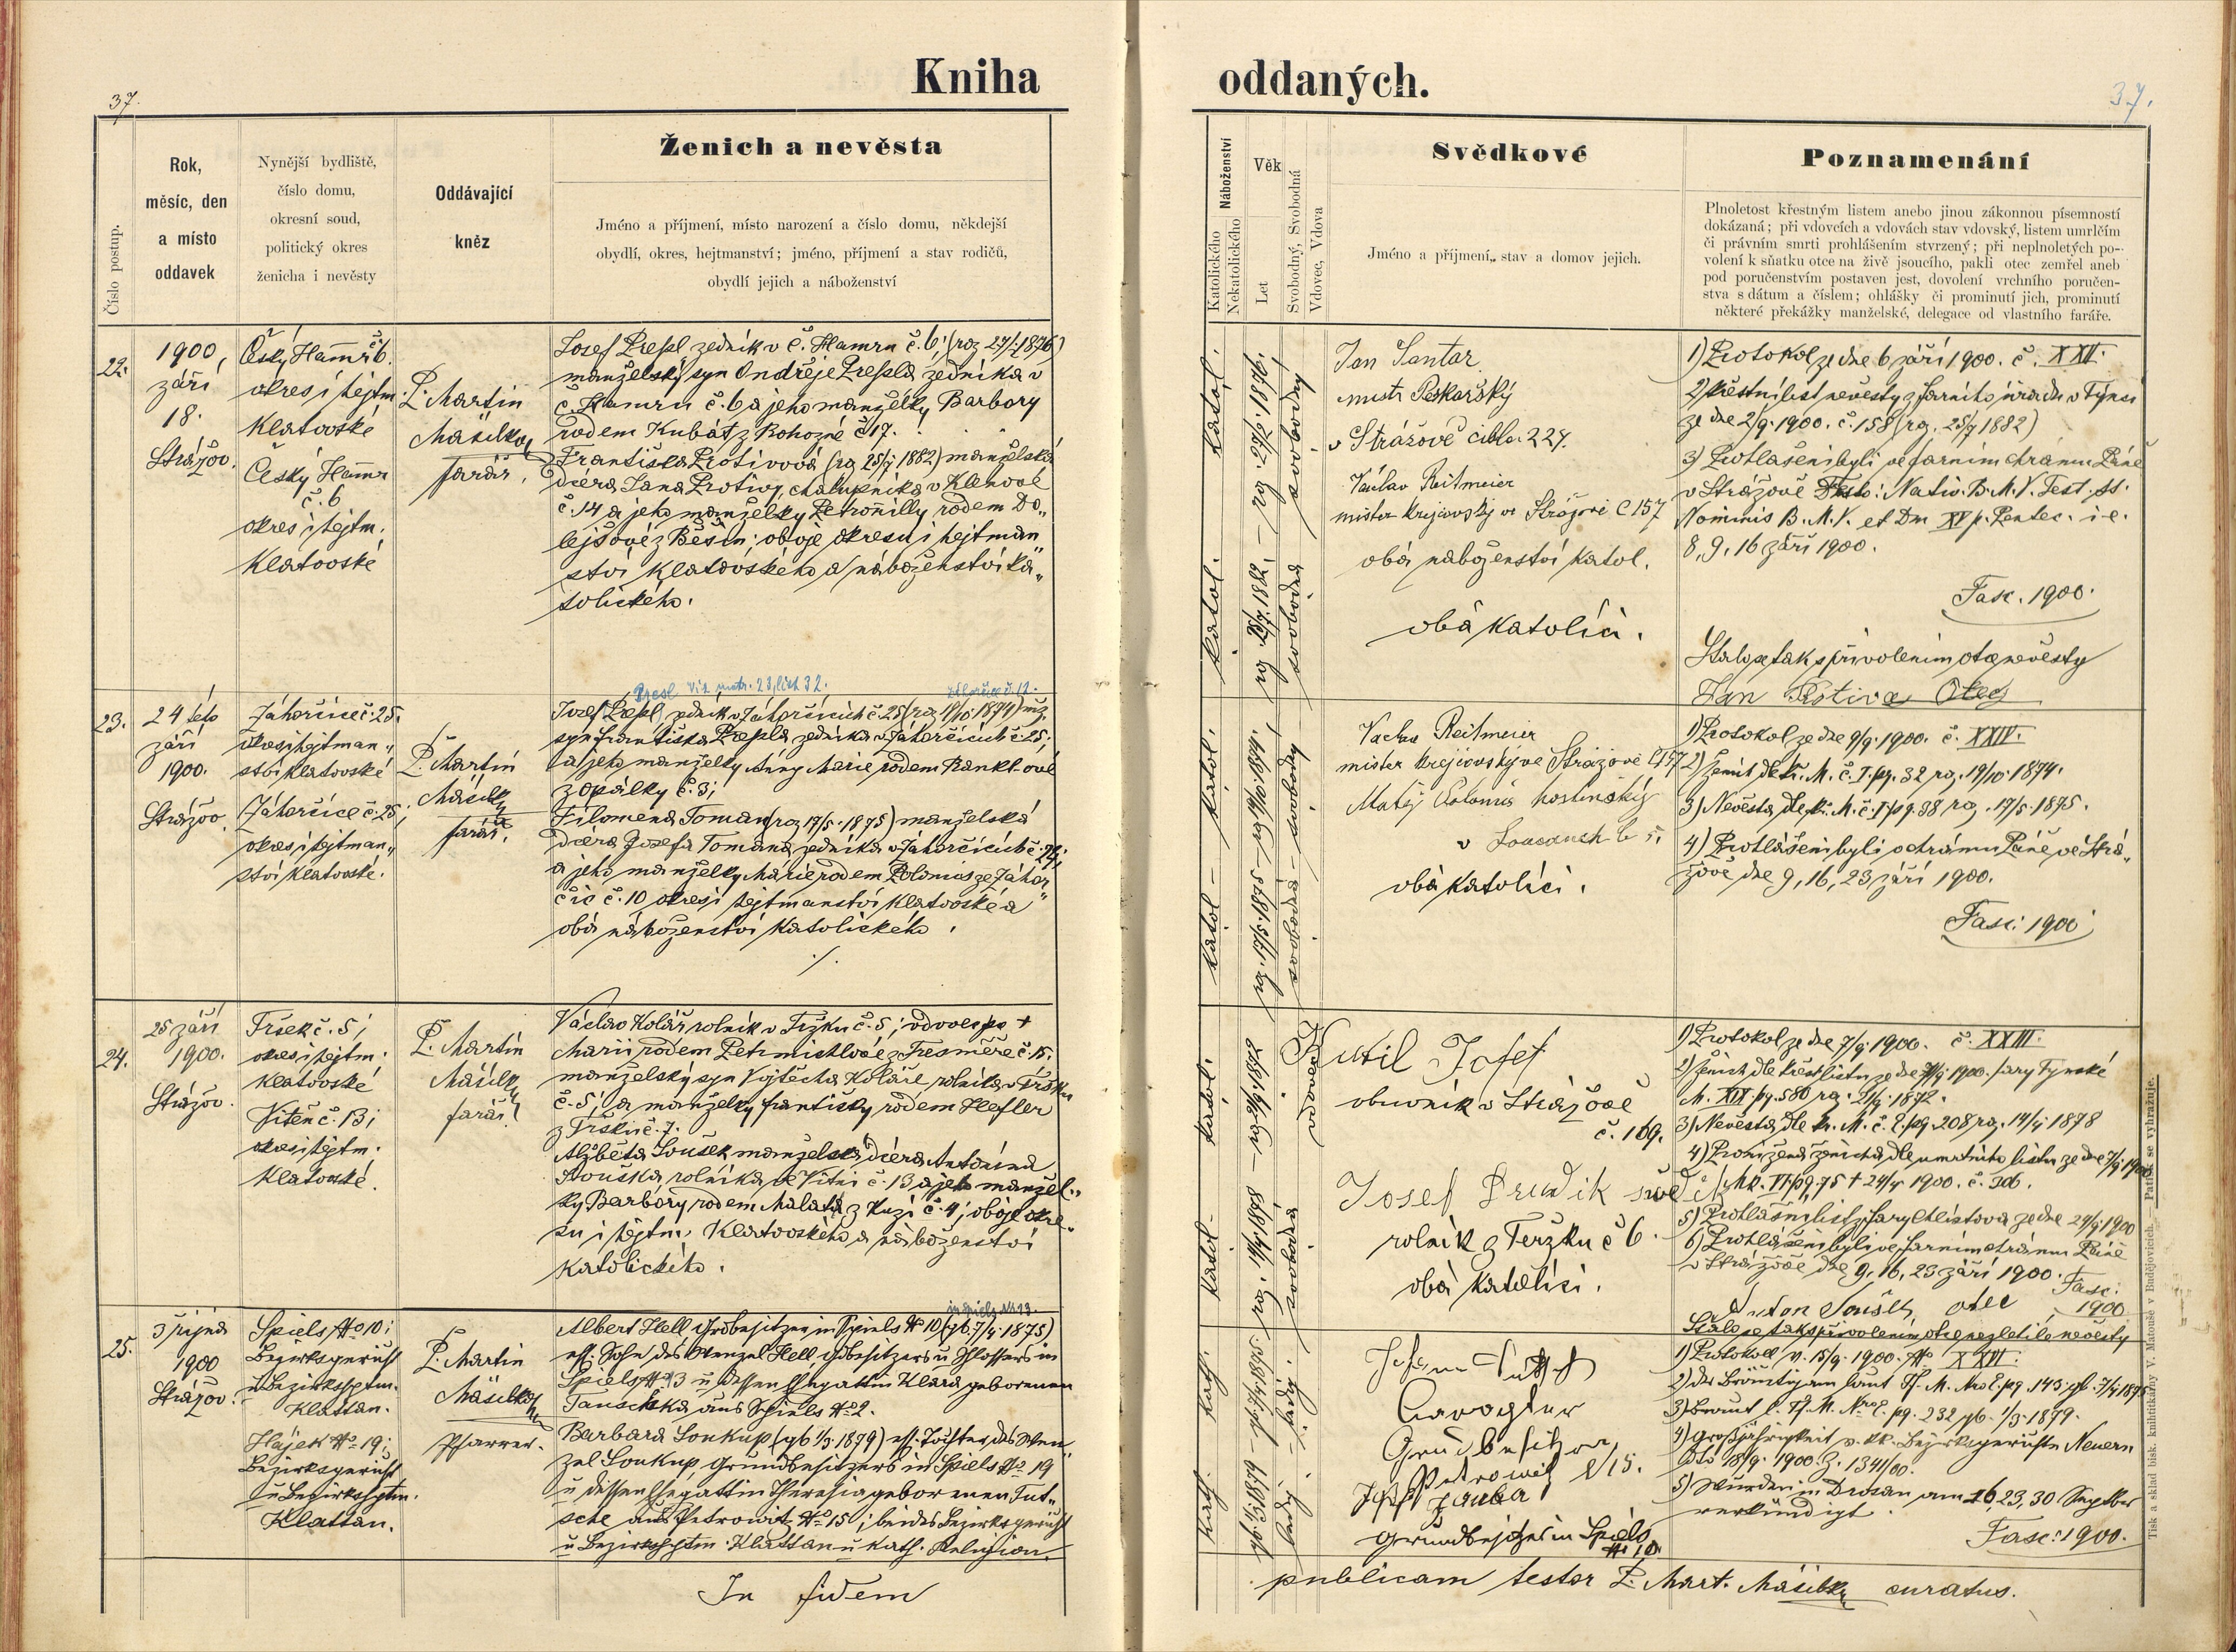 Kniha oddaných.
37.
37.
Číslo postup.
Rok,
měsíc, den
a místo
oddavek
Nynější bydliště,
číslo domu,
okresní soud,
politický okres
ženicha i nevěsty
Oddávající
kněz
Ženich a nevěsta
Jméno a příjmení, místo narození a číslo domu, někdejší
obydlí, okres, hejtmanství; jméno, příjmení a stav rodičů,
obydlí jejich a náboženství
Náboženství
Katolického
Nekatolického
Věk
Let
Svobodný, Svobodná
Vdovec, Vdova
Svědkové
Jméno a příjmení, stav a domov jejich.
Poznamenání
Plnoletost křestným listem anebo jinou zákonnou písemností
dokázaná; při vdovcích a vdovách stav vdovský, listem umrlčím
či právním smrti prohlášením stvrzený; při neplnoletých po-
volení k sňatku otce na živě jsoucího, pakli otec zemřel aneb
pod poručenstvím postaven jest, dovolení vrchního poručen-
stva s dátum a číslem; ohlášky či prominutí jich, prominutí
některé překážky manželské, delegace od vlastního faráře.
22.
1900,
září
18.
Strážov.
Český Hamr č 6.
okres i hejtm.
Klatovské
Český Hamr
č. 6
okres i hejtm.
Klatovské
P. Martin
Mašilka,
farář.
Josef Prešl zedník v Č. Hamru č. 6; (roz 27/1 1876)
manželský syn Ondřeje Prešla zedníka v
Č. Hamru č. 6 a jeho manželky Barbory
rodem Kubát z Rohozné č 17.
Františka Protivová (roz 25/7 1882) manželská
dcera Jana Protivy, chalupníka v Klenové
č. 14 a jeho manželky Petronilly rodem Do„
lejšové z Běšin; oboje okresu i hejtman„
ství Klatovského a náboženství ka„
tolického.
katol.
katol.
svobodný
svobodná
Jan Santar
mistr Pekařský
v Strážově číslo. 227.
Václav Reitmeier
mister krejčovský ve Strážově č 157
obá náboženství katol.
obá katolíci.
1) Protokol ze dne 6 září 1900. č. XXII.
2) křestní list nevěsty z farního úřadu v Týnci
ze dne 2/9. 1900. č. 158 (roz. 25/7 1882)
3) Prohlášeni byli ve farním chrámu Páně
v Strážově Festo: Nativ. B. M. V. Fest. ss.
Nominis B. M. V. et Dm XV p. Pentec. i. e.
8, 9, 16 září 1900.
Fasc. 1900.
Stalo se tak s přivolením otce nevěsty
Jan Protiva Otec
23.
24 tého
září
1900.
Strážov.
Záhorčice č. 25.
okres i hejtman„
ství Klatovské
Záhorčice č. 25;
okres i hejtman„
ství Klatovské.
P. Martin
Mašilka
farář.
Presl Viz matr. 23, list 32.
Josef Prešl, zedník v Záhorčicích č 25 (roz 19/10. 1874) mž.
syn Františka Prešla, zedníka v Záhorčicích č 25;
a jeho manželky Anny Marie rodem Rankl-ové
z Opálky č. 3;
Filomena Toman (roz 17/5. 1875) manželská
dcera Josefa Tomana, zedníka v Záhorčicích č 24;
a jeho manželky Marie rodem Polonius ze Záhor„
čic č. 10 okres i hejtmanství Klatovské a
obá náboženství katolického.
katol.
katol
svobodný
svobodná
Václav Reitmeier
mister krejčovský ve Strážově č 157
Matěj Polonius hostinský
v
obá katolíci.
1) Protokol ze dne 9/9. 1900. č. XXIV.
2) Ženich dle kř. M. č. I. pg. 32 roz. 19/10. 1874.
3) Nevěsta dle kř. M. č. I pg. 38 roz. 17/5. 1875.
4) Prohlášeni byli v chrámu Páně ve Strá„
žově dne 9, 16, 23 září 1900.
Fasc: 1900
24.
25 září
1900.
Strážov.
Tršek č. 5;
okres i hejtm.
klatovské
Viteň č. 13;
okres i hejtm.
Klatovské.
P. Martin
Mašilka
farář
Václav Kolář rolník v Tržku č. 5; vdovec po +
Marii rodem Petrmichlové z Tresměře č. 15.
manželský syn Vojtěcha Koláře rolníka v Tršku
č. 5; a manželky Františky rodem Hefler
z Tršku č. 7.
Alžběta Soušek manželská dcera Antonína
Souška, rolníka ve Vítni č. 13 a jeho manžel„
ky Barbory rodem Malata z Kuzí č. 4; oboje okre„
su i hejtm. Klatovského a náboženství
katolického.
katol.
katol.
vdovec
svobodná
Kutil Josef
obuvník v Strážově
č. 169.
Josef Prudik
rolník z Teržku č 6.
obá katolíci.
1) Protokol ze dne 7/9. 1900. č. XXIII.
M. XIX. pg. 580 roz. 21/9. 1872.
3) Nevěsta dle kr. M. č. I. pg. 208 roz. 14/4 1878
6) Prohlášeni byli ve farním chrámu Páně
v Strážově dne 9, 16, 23 září 1900. Fasc:
1900
Anton Soušek, otec
Stalo se tak s přivolením otce nezletilé nevěsty
25.
3 října
1900
Strážov.
Spiels No 10;
Bezirksgericht
u Bezirkshptm.
Klattau.
Hájek No 19;
Bezirksgericht
u Bezirkshptm.
Klattau.
P. Martin
Mašilka
Pfarrer.
in Spiels No 13.
Albert Hell Grdbesitzer in Spiels No 10 (gb. 7/4. 1875)
ehl. Sohn des Wenzel Hell, Grdbesitzers u Schlossers in
Spiels No 13 u dessen Ehegattin Klara geborenen
Tauschka aus Spiels No 2.
Barbara Soukup (gb 1/3. 1879) ehl. Tochter des Wen„
zel Soukup, Grundbesitzers in Spiels No 19
u dessen Ehegattin Theresia geborenen Tut„
sche aus Petrowitz No 15; beides Bezirksgericht
u Bezirkshptm. Klattau u kath. Religion.
kath.
kath.
ledig.
ledig.
Grundbesitzer
Petrowitz N 15.
Grundbesitzer in Spiels
No 10.
1) Protokoll v. 15/9. 1900. No XXVI.
2) der Bräutigam laut Tf. M. Nro I. pg. 143. gb. 7/4 1875
3) Braut l. Tf. M. Nro I. pg. 232 gb. 1/3. 1879.
4) Großjährigkeit v. kk. Bezirksgerichte Neuern
dto 18/9. 1900. Z. 1341/00.
5) Wurden in Drosau am 16, 23, 30 September
verkündigt.
Fasc: 1900.
In fidem
publicam testor P. Mart. Mašilka curatus.
Tisk a sklad bisk. knihtiskárny V. Matouše v Budějovicích. — Patisk se vyhražuje.